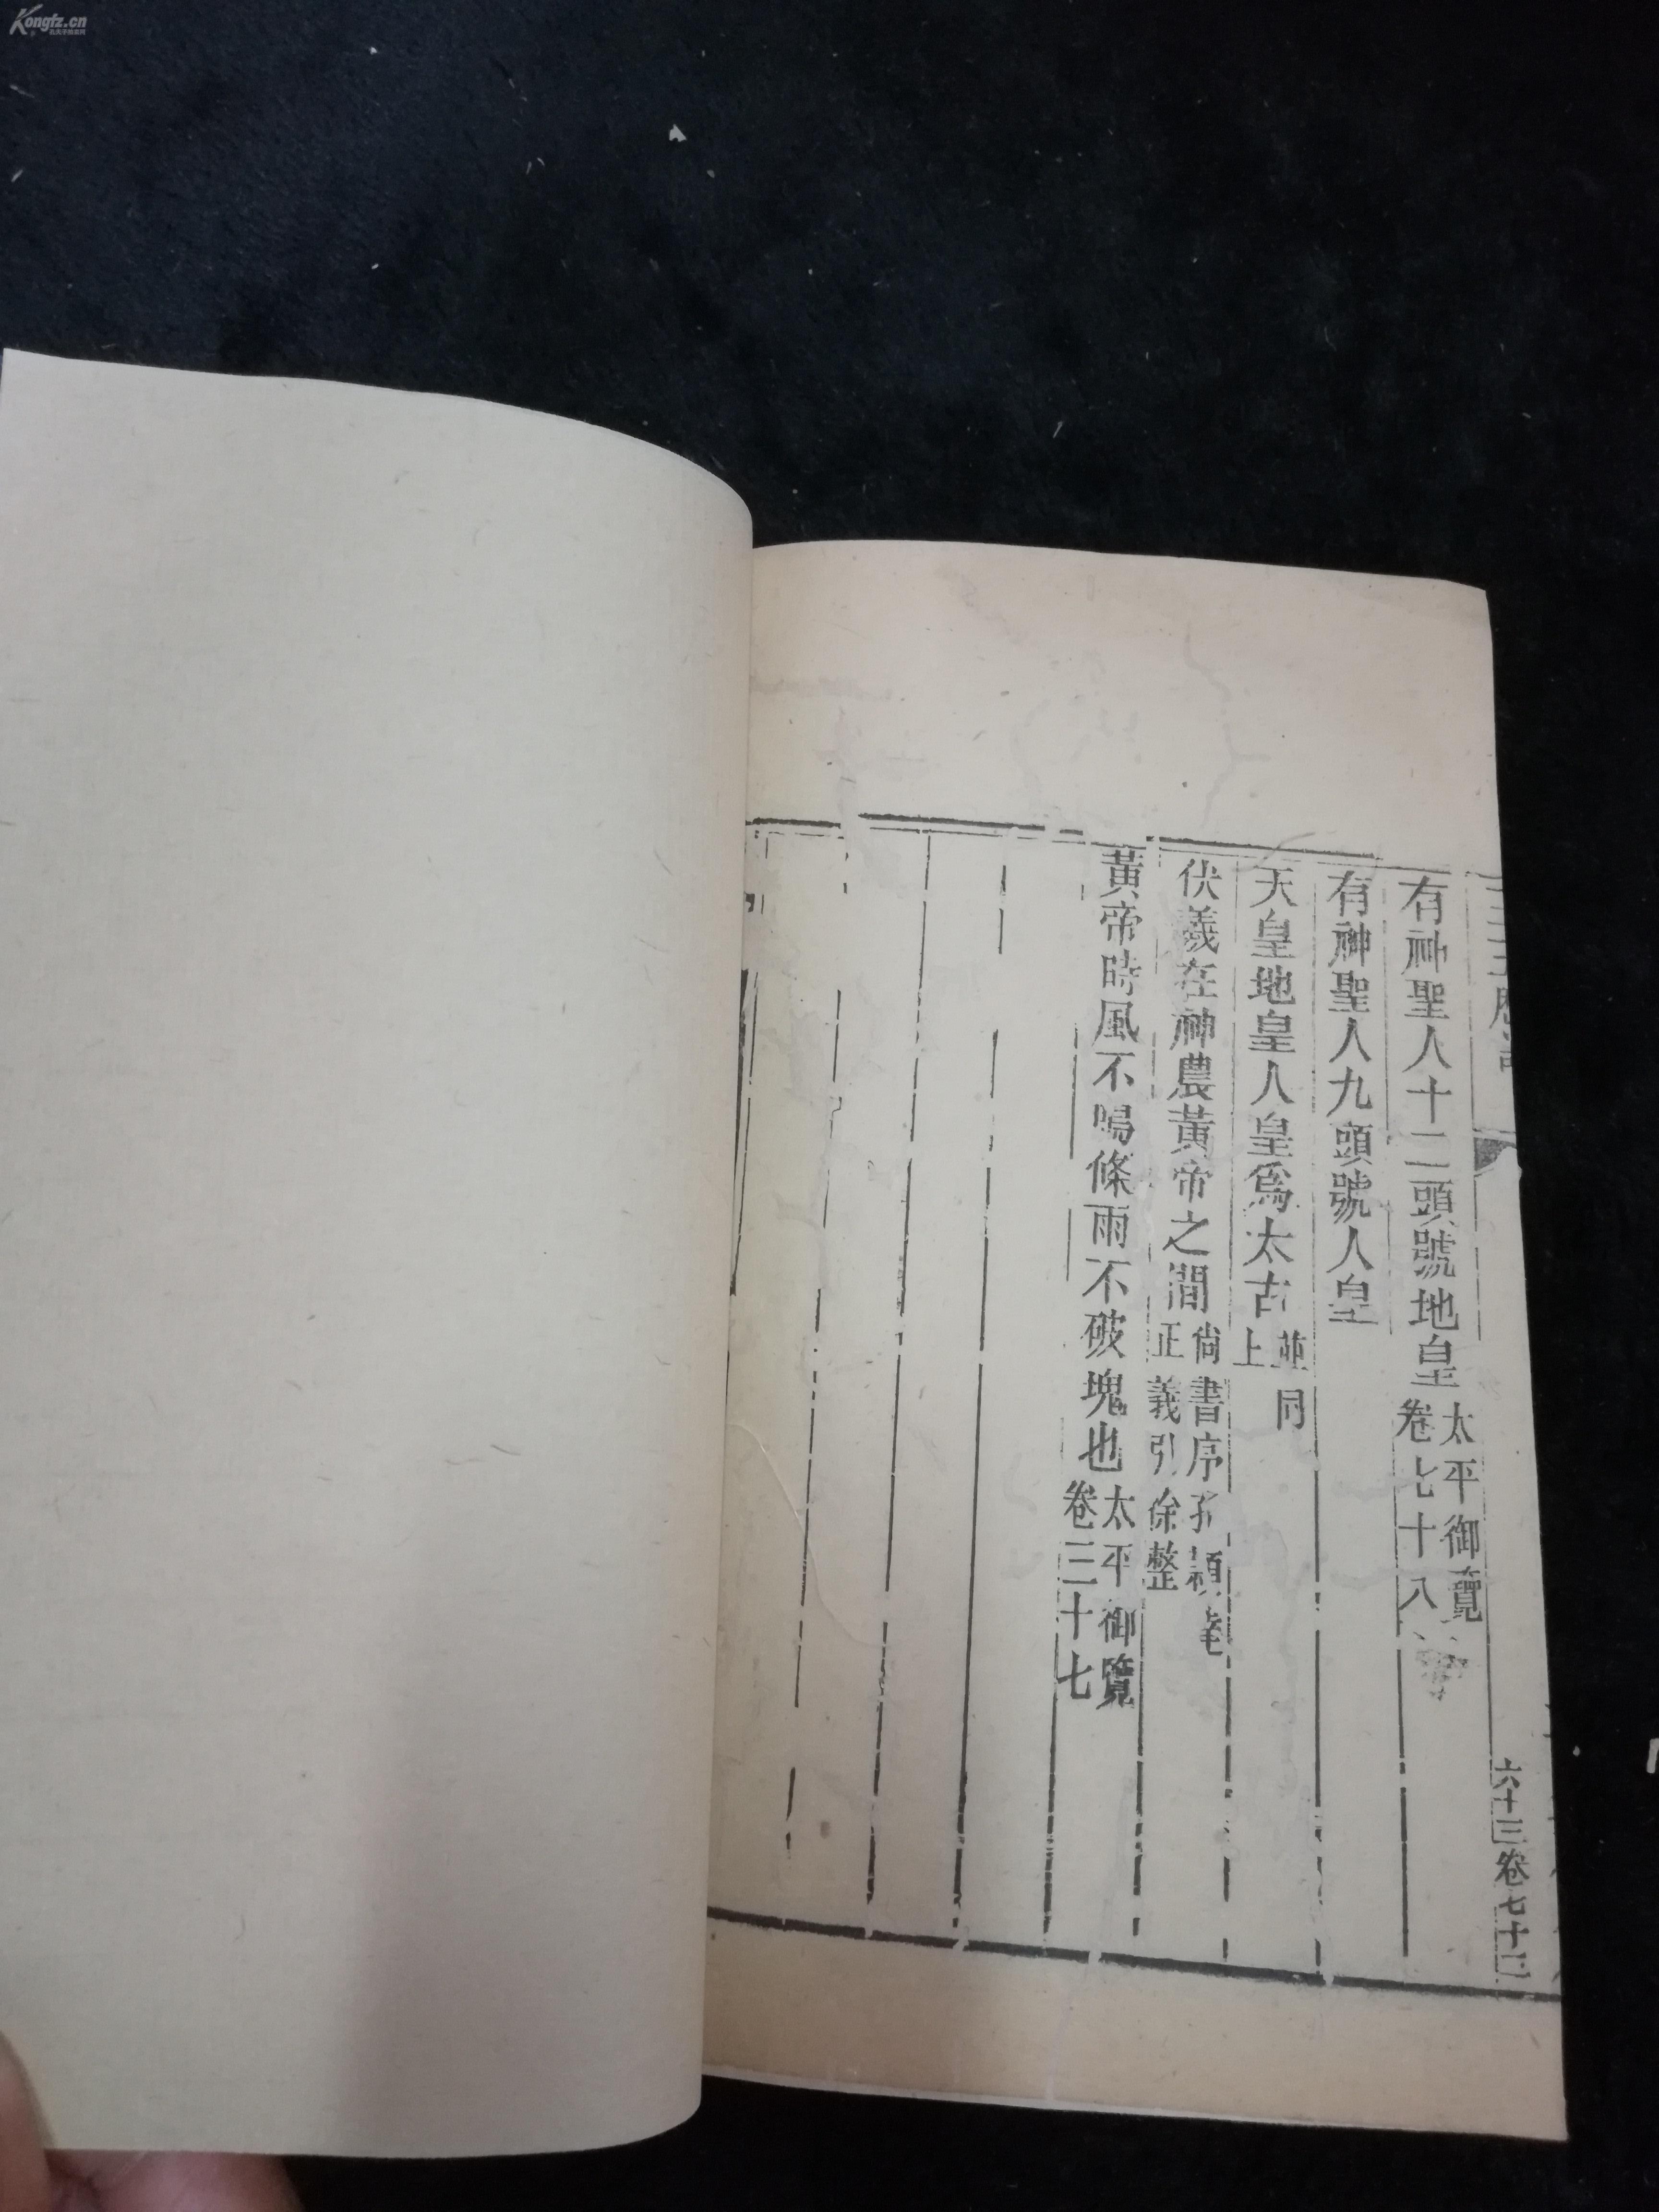 Kongfz.cn
孔夫子旧书网
六十三卷七十三
有神聖人十二頭號地皇太平御覽
卷七十八
有神聖人九頭號人皇
天皇地皇人皇爲太古並同
上
伏羲在神農黃帝之間尙書序孔穎達
正義引徐整
黃帝時風不鳴條雨不破塊也太平御覽
卷三十七